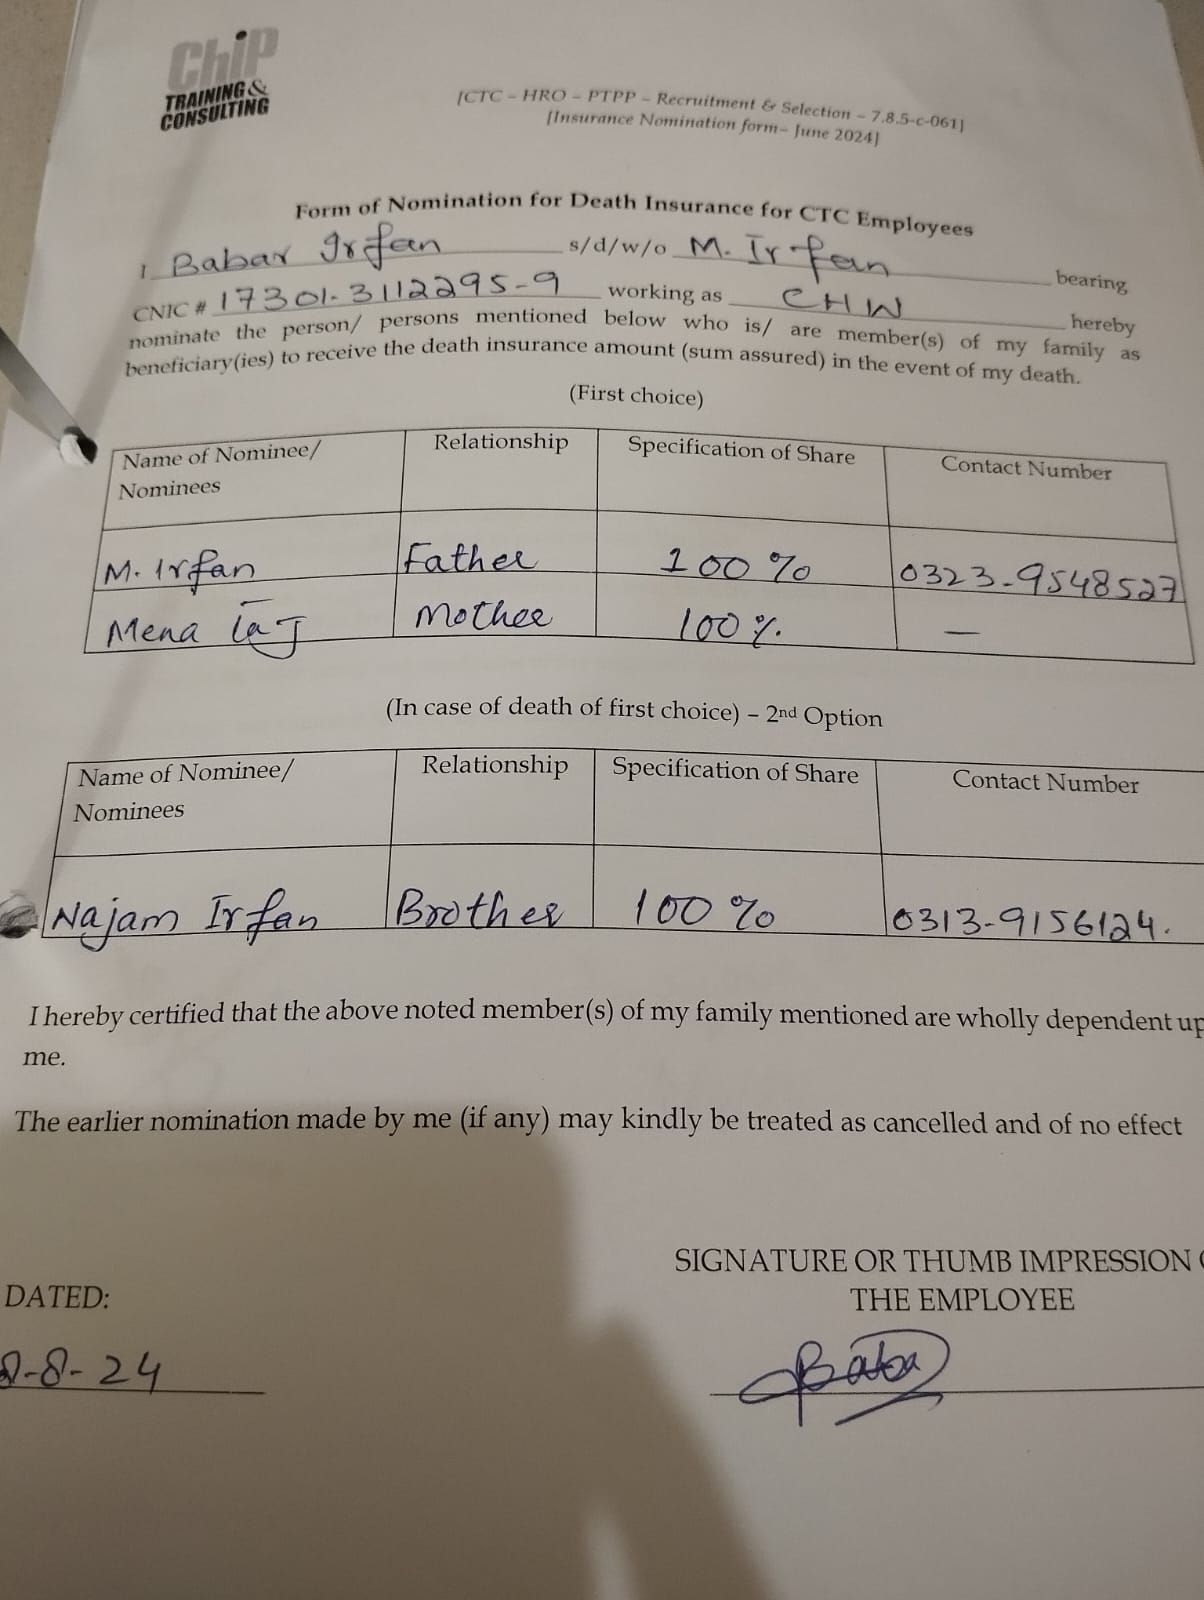 Chip
TRAINING &
CONSULTING
[CTC – HRO – PTPP – Recruitment & Selection – 7.8.5-c-061]
[Insurance Nomination form– June 2024]
Form of Nomination for Death Insurance for CTC Employees
I Babar Irfan s/d/w/o M. Irfan bearing
CNIC # 17301-3112295-9 working as CHW hereby
nominate the person/ persons mentioned below who is/ are member(s) of my family as
beneficiary(ies) to receive the death insurance amount (sum assured) in the event of my death.
(First choice)
Name of Nominee/ Relationship Specification of Share Contact Number
Nominees
M. Irfan Father 100 % 0323-9548527
Mena Mother 100 % —
(In case of death of first choice) – 2nd Option
Name of Nominee/ Relationship Specification of Share Contact Number
Nominees
Najam Irfan Brother 100 % 0313-9156124.
I hereby certified that the above noted member(s) of my family mentioned are wholly dependent up
me.
The earlier nomination made by me (if any) may kindly be treated as cancelled and of no effect
SIGNATURE OR THUMB IMPRESSION
DATED: THE EMPLOYEE
-8-24 Baba